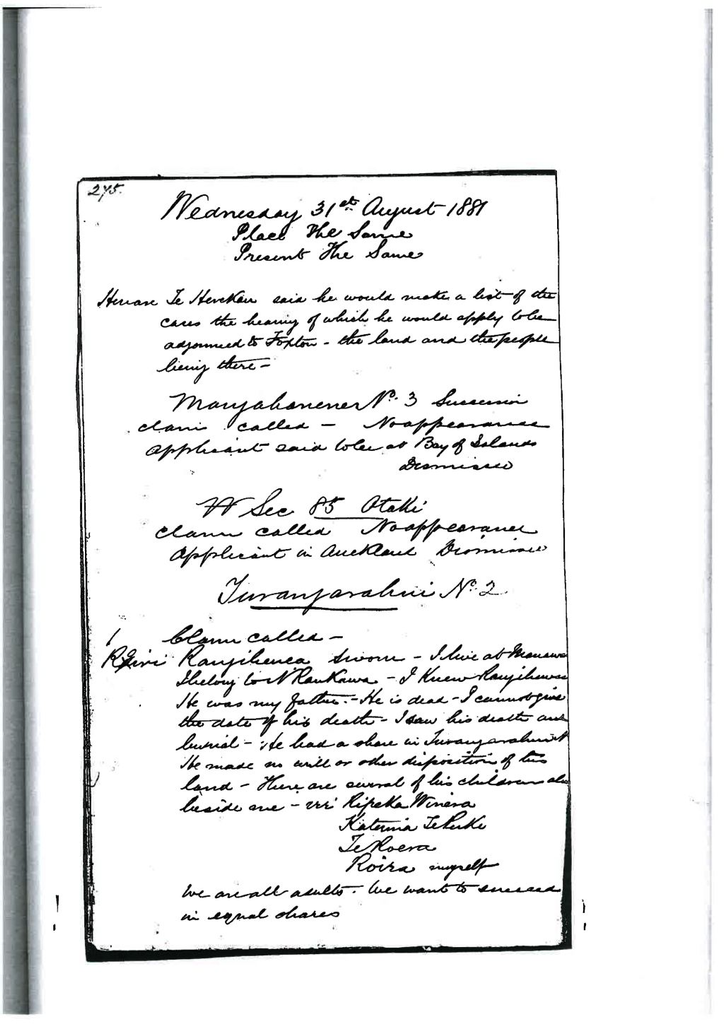 275.
Wednesday 31st August 1881
Place The Same
Present The Same
Te said he would make a list of the
cases the hearing of which he would apply to be
adjourned to Foxton - the land and the people
being there -
No. 3 Succession
claim called - No appearance
applicant said to be at Bay of Islands
Dismissed
W Sec 85 Otaki
claim called No appearance
Applicant in Auckland Dismissed
Turangarahui No. 2
1 Claim called -
Rangihenea sworn - I live at Manawa
I belong to N Raukawa - I knew Rangihenea
He was my father. - He is dead - I cannot give
the date of his death - I saw his death and
burial - He had a share in Turangarahui
He made no will or other disposition of this
land - There are several of his children
beside me - viz Ripeka Winera
Katerina Te
Te Roera
Roira myself
We are all adults. We want to succeed
in equal shares